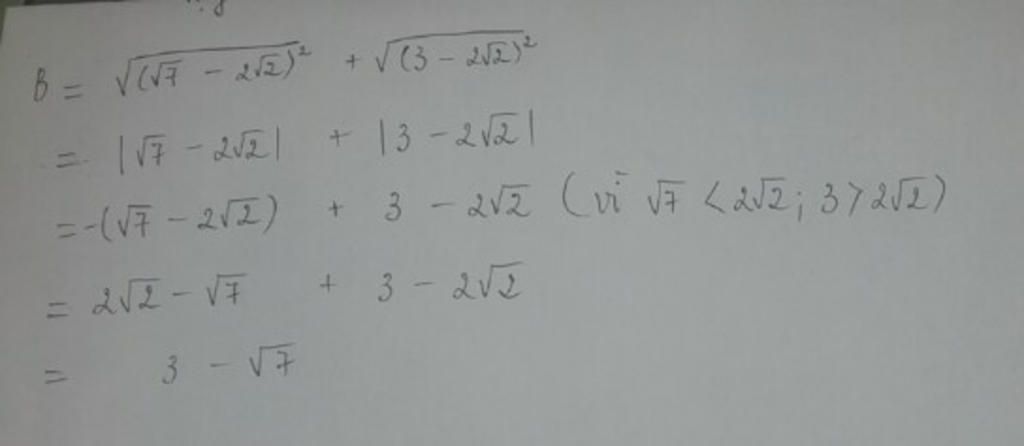 B = √(√7 - 2√2)² + √(3 - 2√2)²
= |√7 - 2√2| + |3 - 2√2|
= -(√7 - 2√2) + 3 - 2√2 (vì √7 < 2√2; 3 > 2√2)
= 2√2 - √7 + 3 - 2√2
= 3 - √7